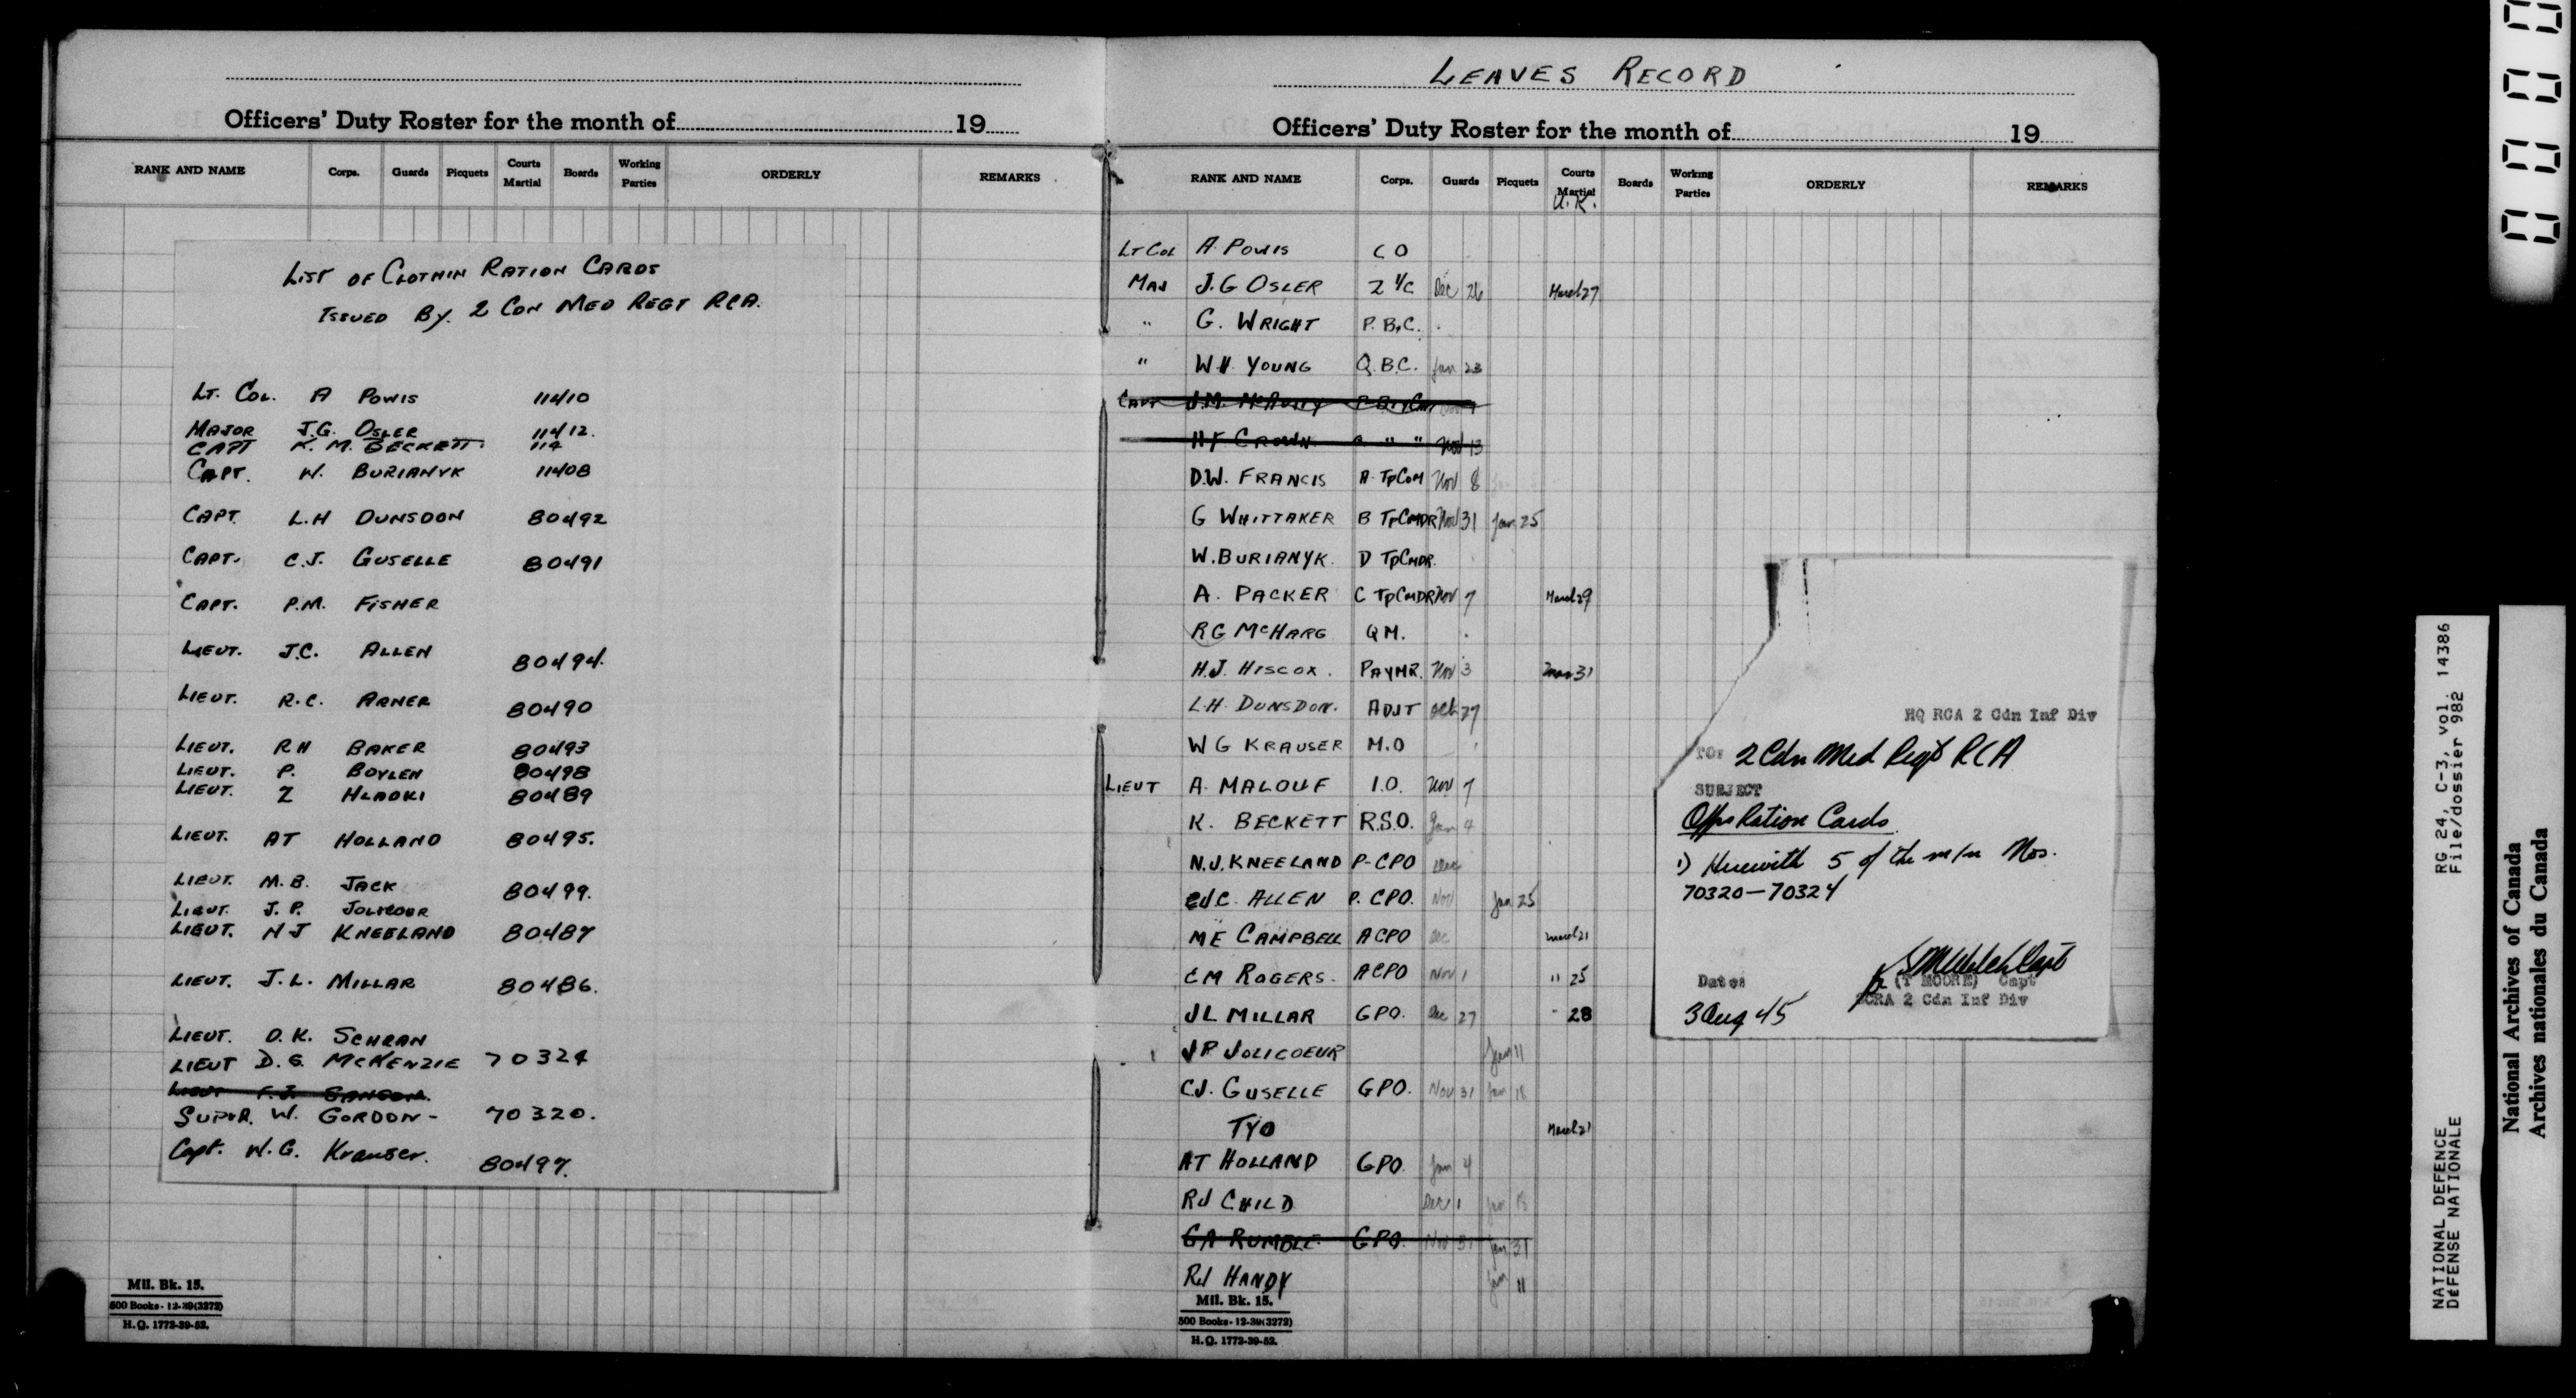 Officers' Duty Roster for the month of 19
RANK AND NAME Corps. Guards Picquets Courts Martial Boards Working Parties ORDERLY REMARKS
LIST OF CLOTHIN RATION CARDS
ISSUED BY. 2 CDN MED REGT RCA.
LT. COL. A POWIS 11410
MAJOR J.G. OSLER 11412.
CAPT K. M. BECKETT. 114
CAPT. W. BURIANYK 11408
CAPT. L.H DUNSDON 80492
CAPT. C.J. GUSELLE 80491
CAPT. P.M. FISHER
LIEUT. J.C. ALLEN 80494.
LIEUT. R.C. ARNER 80490
LIEUT. RH BAKER 80493
LIEUT. P. BOYLEN 80498
LIEUT. Z HLADKI 80489
LIEUT. AT HOLLAND 80495.
LIEUT. M.B. JACK 80499.
LIEUT. J.P. JOLICOUR
LIEUT. NJ KNEELAND 80487
LIEUT. J.L. MILLAR 80486.
LIEUT. D.K. SCHRAN
LIEUT D.G. MCKENZIE 70324
LIEUT F.J.
SUPVR. W. GORDON - 70320.
Capt. W.G. Krauser. 80497.
Mil. Bk. 15.
500 Books - 12-39(3272)
H.Q. 1772-39-52.
LEAVES RECORD
Officers' Duty Roster for the month of 19
RANK AND NAME Corps. Guards Picquets Courts Martial Boards Working Parties ORDERLY REMARKS
U.K.
LT COL A. POWIS CO
MAJ J.G OSLER 2 I/C Dec 26 March 27
" G. WRIGHT P.B.C.
" W.H. YOUNG Q.B.C. Jan 23
CAPT J.M.
H.F. CROWN " " Nov 13
D.W. FRANCIS A. TpCOM Nov 8
G WHITTAKER B TpCMDR Nov 31 Jan 25
W. BURIANYK. D TpCMDR.
A. PACKER C TpCMDR Nov 7 March 29
RG McHARG QM.
H.J. HISCOX. PAYMR. Nov 3 Mar 31
L.H. DUNSDON. ADJT Oct 27
W G KRAUSER M.O
LIEUT A. MALOUF I.O. Nov 7
K. BECKETT R.S.O. Jan 4
N.J. KNEELAND P-CPO Dec
JC ALLEN P. CPO. Nov Jan 25
ME CAMPBELL ACPO Dec March 21
CM ROGERS. ACPO Nov 1 " 25
JL MILLAR GPO. Dec 27 " 28
JP JOLICOEUR Jan 11
CJ. GUSELLE GPO. Nov 31 Jan 18
TYO March 21
AT HOLLAND GPO. Jan 4
RJ CHILD Dec 1 Jan 18
GA RUMBLE GPO. Nov 31 Jan 31
RJ HANDY Jan 11
Mil. Bk. 15.
500 Books - 12-39(3272)
H.Q. 1772-39-52.
HQ RCA 2 Cdn Inf Div
TO: 2 Cdn Med Regt RCA
SUBJECT
Offrs Ration Cards
1) Herewith 5 of the m/n Nos.
70320-70324
(T MOORE) Capt
SCRA 2 Cdn Inf Div
Date:
3 Aug 45
RG 24, C-3, vol. 14386
File/dossier 982
NATIONAL DEFENCE
DÉFENSE NATIONALE
National Archives of Canada
Archives nationales du Canada